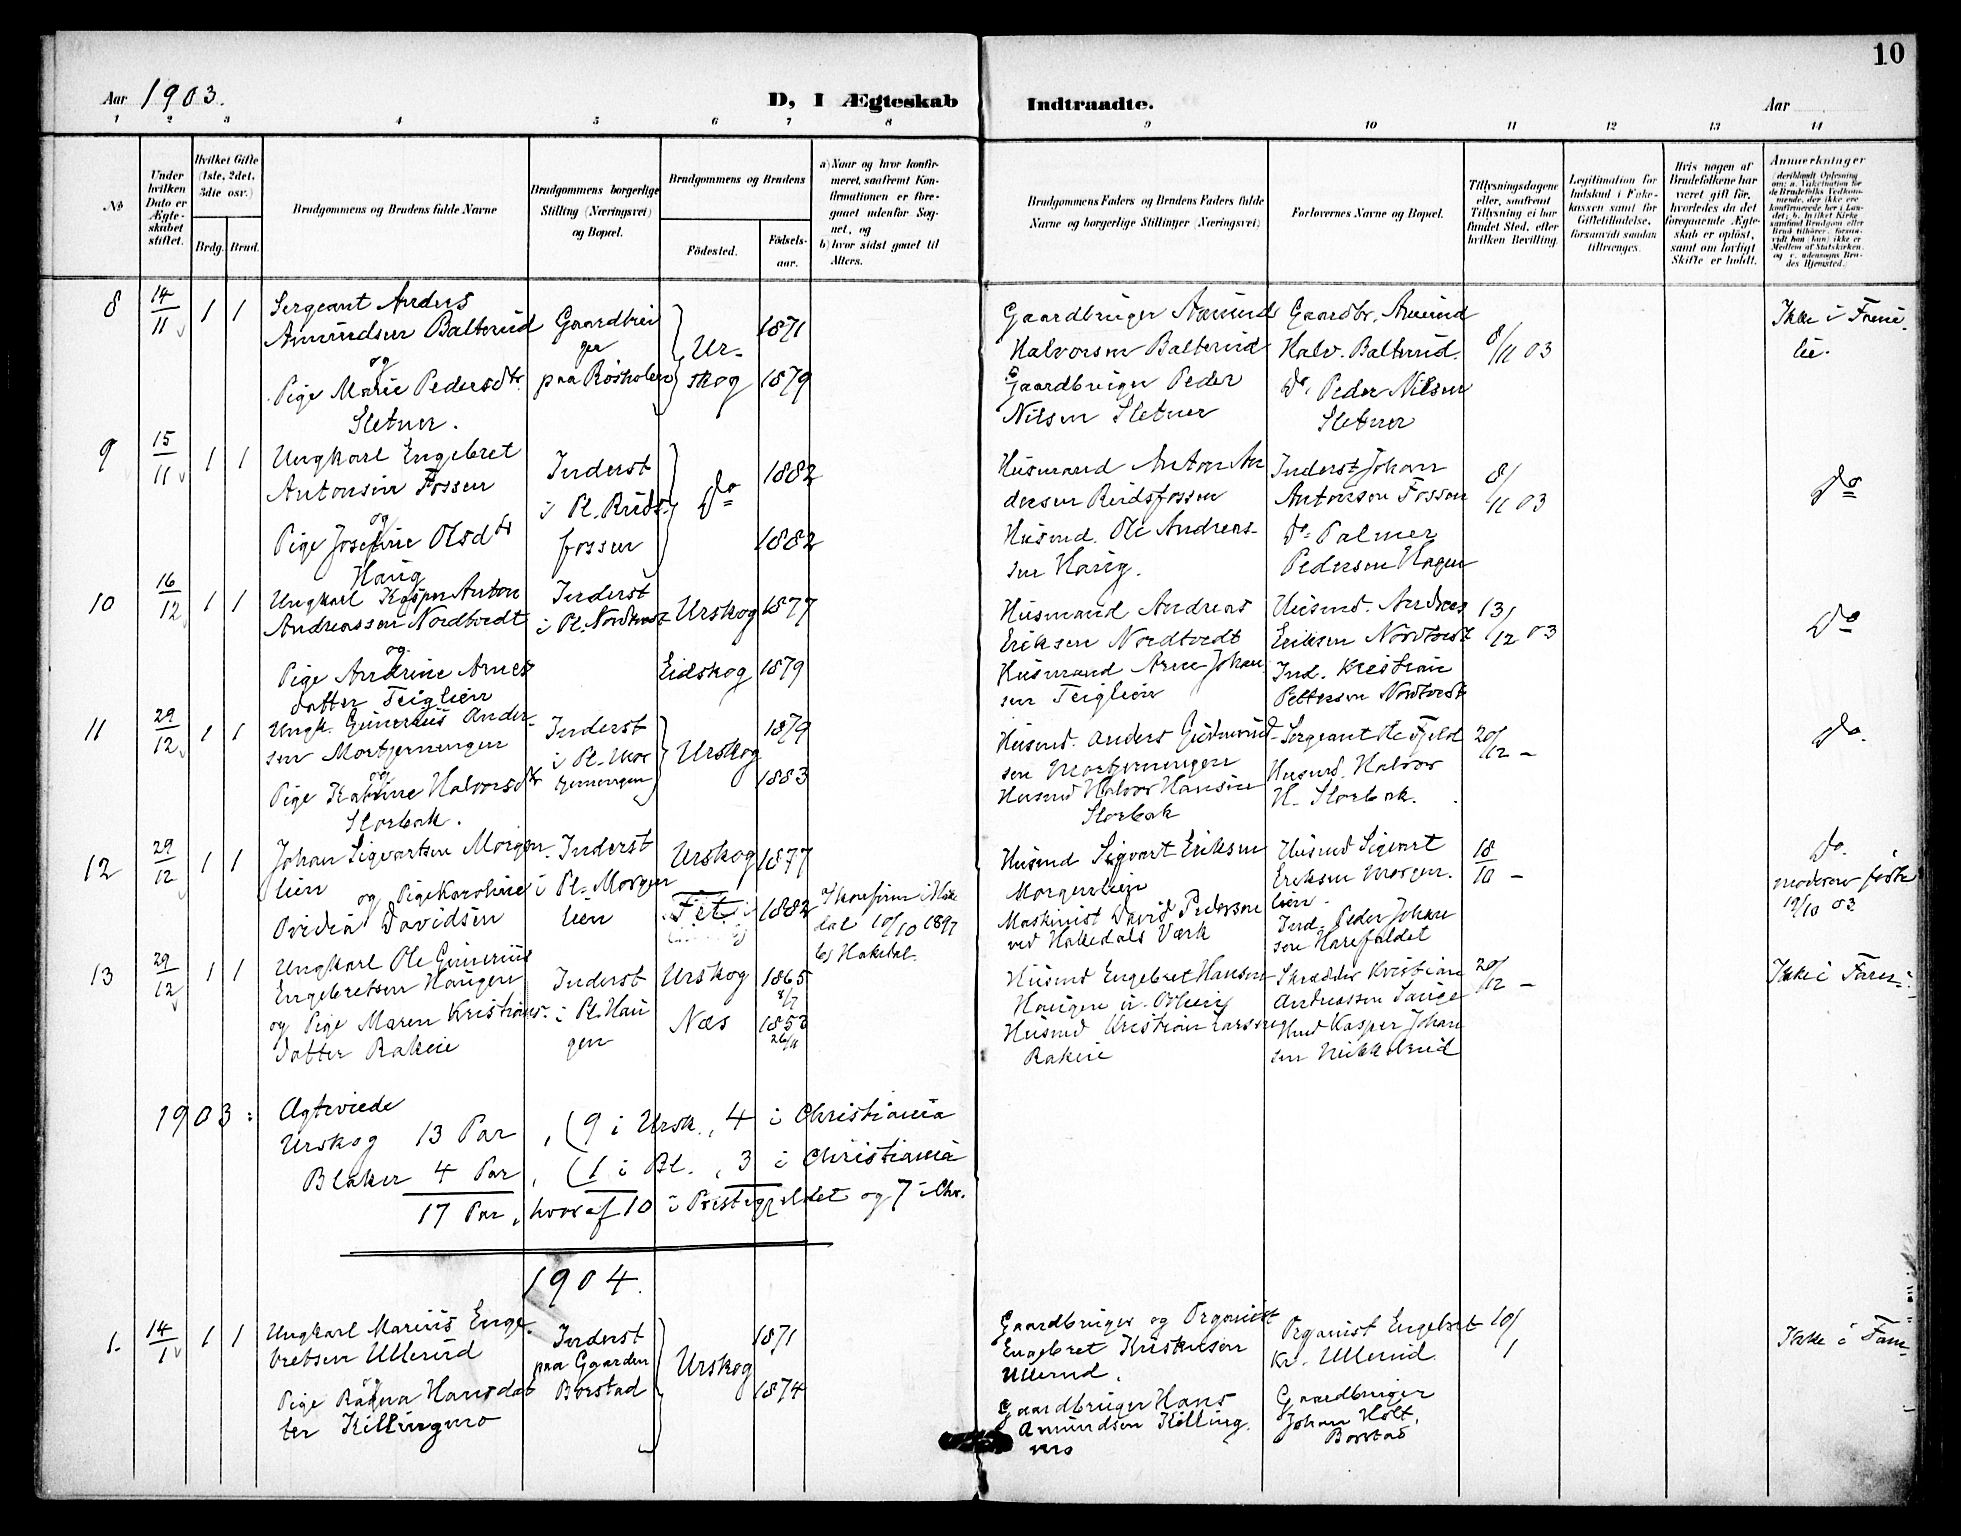 10
Aar 1903.
D, I Ægteskab
Indtraadte.
Aar
1 2 3 4 5 6 7 8 9 10 11 12 13 14
No
Under hvilken Dato er Ægteskabet stiftet.
Hvilket Gifte (1ste, 2det, 3die osv.)
Brdg. Brud.
Brudgommens og Brudens fulde Navne
Brudgommens borgerlige Stilling (Næringsvei) og Bopæl.
Brudgommens og Brudens
Fødested.
Fødselsaar.
a) Naar og hvor konfirmeret, saafremt Konfirmationen er foregaaet udenfor Sognet, og
b) hvor sidst gaaet til Alters.
Brudgommens Faders og Brudens Faders fulde Navne og borgerlige Stillinger (Næringsvei)
Forlovernes Navne og Bopæl.
Tillysningsdagene eller, saafremt Tillysning ei har fundet Sted, efter hvilken Bevilling.
Legitimation for Indskud i Enkekassen samt for Giftetilladelse, forsaavidt saadan tiltrænges.
Hvis nogen af Brudefolkene har været gift før, hvorledes da det foregaaende Ægteskab er opløst, samt om lovligt Skifte er holdt.
Anmerkninger
8 14/11 1 1 Sergeant Anders
Amundsen Balterud
og
Pige Marie Pedersdtr.
Sletner.
Gaardbruger
paa Rosholen
Urskog
1871
1879
Gaardbruger Amund
Halvorsen Balterud
Gaardbruger Peder
Nilsen Sletner
Gaardbr. Amund
Halv. Balterud.
Do. Peder Nilsen
Sletner
8/11 03
Ikke i Familie.
9 15/11 1 1 Ungkarl Engebret
Antonsen Fossen
og
Pige Josefine Olsdtr
Haug
Inderst
i Pl. Ruds-
fossen
Do
1882
1882
Husmand Anton An
dersen Rudsfossen
Husmd. Ole Andreas-
sen Haug.
Inderst Johan
Antonsen Fossen
Do. Palmer
Pedersen Hagen
8/11 03
Do
10 16/12 1 1 Ungkarl Kasper Anton
Andreassen Nordtvedt
og
Pige Andrine Arnes
datter Teiglien
Inderst
i Pl. Nordtvedt
Urskog 1877
Eidskog 1879
Husmand Andreas
Eriksen Nordtvedt
Husmand Arne Johan
sen Teiglien
Husmd. Andreas
Eriksen Nordtvedt
Ind. Kristian
Pettersen Nordtvedt
13/12 03
Do
11 29/12 1 1 Ungk. Gunerius Ander-
sen Mortjerningen
og
Pige Katrine Halvorsdtr
Storbak.
Inderst
i Pl. Mor
tjerningen
Urskog
1879
1883
Husmd. Anders Gudmund-
sen Mortjerningen
Husmd Halvor Hansen
Storbak
Sergeant Ole Fjeld
Husmd. Halvor
H. Storbak.
20/12 –
Do.
12 29/12 1 1 Johan Sigvartsen Morgen
lien og Pige Karoline
Ovidia Davidsen
Inderst
i Pl. Morgen
lien
Urskog 1877
Fet 1882
a) konfirm i
dal 10/10 1897
b) Hakedal.
Husmd Sigvart Eriksen
Morgenlien
Maskinist David Pedersen
ved Hakedals Værk
Husmd Sigvart
Eriksen Morgen-
lien.
Ind. Peder Johan
sen Harefaldet
18/10 –
Do.
19/10 03
13 29/12 1 1 Ungkarl Ole Gunerius
Engebretsen Haugen
og Pige Maren Kristians-
datter Rakeie
Inderst
i Pl. Hau
gen
Urskog 1865
8/7
Næs 1853
Husmd Engebret Hansen
Haugen
Husmd Kristian Larsen
Rakeie
Skrædder Kristian
Andreassen
Kasper Johan
sen
20/12 –
Ikke i Fam.
1903: Ægteviede
Urskog 13 Par, (9 i Ursk., 4 i Christiania
Blaker 4 Par, (1 i Bl., 3 i Christiania
17 Par, hvoraf 10 i Præstegjeldet og 7 i Chr.
1904.
1. 14/1 1 1 Ungkarl Marius Enge-
bretsen Ullerud
og
Pige Ragna Hansdat
ter Killingmo
Inderst
paa Gaarden
Borstad
Urskog
1871
1874
Gaardbruger og Organist
Engebret Kristensen
Ullerud.
Gaardbruger Hans
Amundsen Killing-
mo
Organist Engebret
Kr. Ullerud.
Gaardbruger
Johan Holt,
Borstad
10/1
Ikke i Fam-